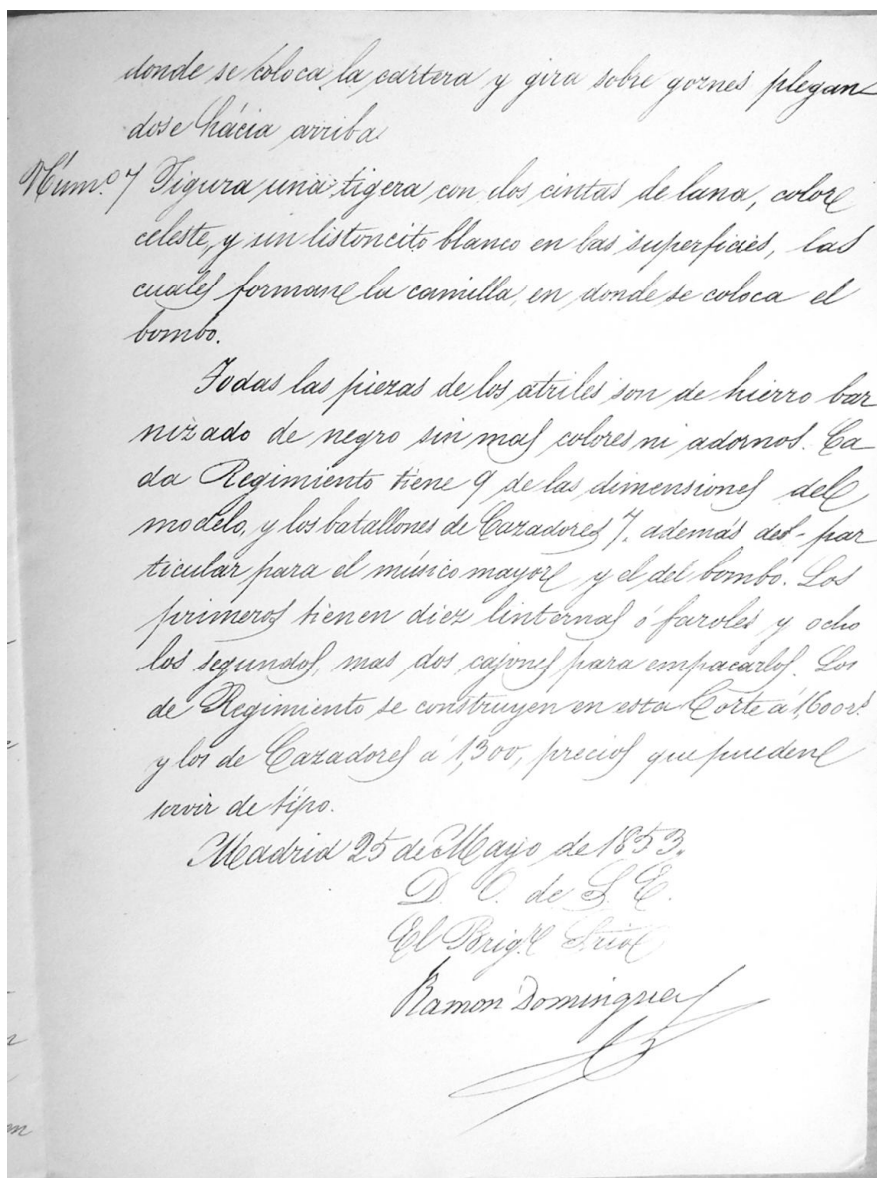 donde se coloca la cartera y gira sobre goznes plegan
dose hácia arriba
Núm.º 7 Figura una tigera con dos cintas de lana, color
celeste, y un listoncito blanco en las superficies, las
cuales forman la camilla en donde se coloca el
bombo.
Todas las piezas de los atriles son de hierro bar
nizado de negro sin mas colores ni adornos. Ca
da Regimiento tiene 9 de las dimensiones del
modelo, y los batallones de Cazadores 7, además del par
ticular para el músico mayor y el del bombo. Los
primeros tienen diez linternas ó faroles y ocho
los segundos, mas dos cajones para empacarlos. Los
de Regimiento se construyen en esta Corte á 1,600 rs.
y los de Cazadores á 1,300, precios que pueden
servir de tipo.
Madrid 25 de Mayo de 1853.
D. O. de S. E.
El Brig.r Srio
Ramon Dominguez